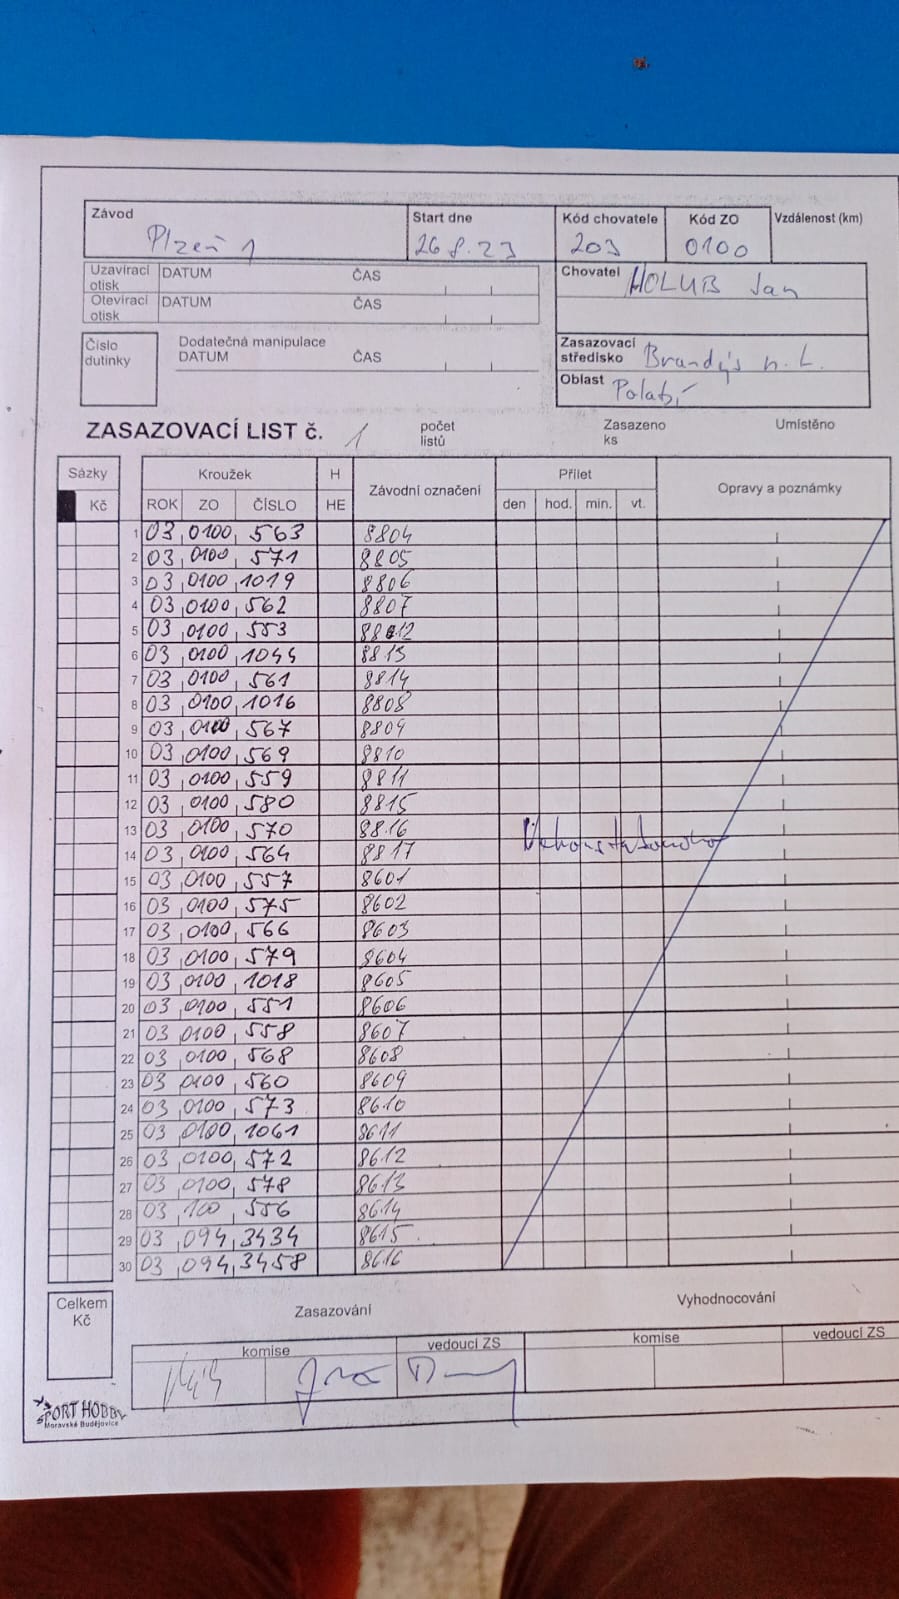 Závod Start dne Kód chovatele Kód ZO Vzdálenost (km)
Plzeň 1 26.8.23 203 0100
Uzavírací otisk DATUM ČAS Chovatel HOLUB Jan
Otevírací otisk DATUM ČAS
Číslo dutinky Dodatečná manipulace DATUM ČAS Zasazovací středisko Brandýs n. L.
Oblast Polabí
ZASAZOVACÍ LIST č. 1 počet listů Zasazeno ks Umístěno
Sázky Kroužek H Závodní označení Přílet Opravy a poznámky
Kč ROK ZO ČÍSLO HE den hod. min. vt.
1 03 0100 563 8804
2 03 0100 571 8805
3 03 0100 1019 8806
4 03 0100 562 8807
5 03 0100 553 8812
6 03 0100 1044 8813
7 03 0100 561 8814
8 03 0100 1016 8808
9 03 0100 567 8809
10 03 0100 569 8810
11 03 0100 559 8811
12 03 0100 580 8815
13 03 0100 570 8816
14 03 0100 564 8817
15 03 0100 557 8601
16 03 0100 575 8602
17 03 0100 566 8603
18 03 0100 579 8604
19 03 0100 1018 8605
20 03 0100 551 8606
21 03 0100 558 8607
22 03 0100 568 8608
23 03 0100 560 8609
24 03 0100 573 8610
25 03 0100 1061 8611
26 03 0100 572 8612
27 03 0100 578 8613
28 03 100 556 8614
29 03 094 3434 8615
30 03 094 3458 8616
Celkem Kč Zasazování Vyhodnocování
komise vedoucí ZS komise vedoucí ZS
SPORT HOBBY
Moravské Budějovice